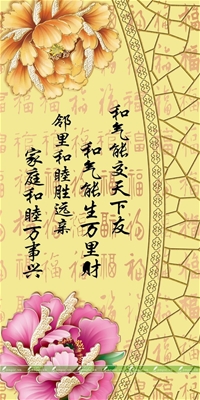 和气能交天下友
和气能生万里财
邻里和睦胜远亲
家庭和睦万事兴
福